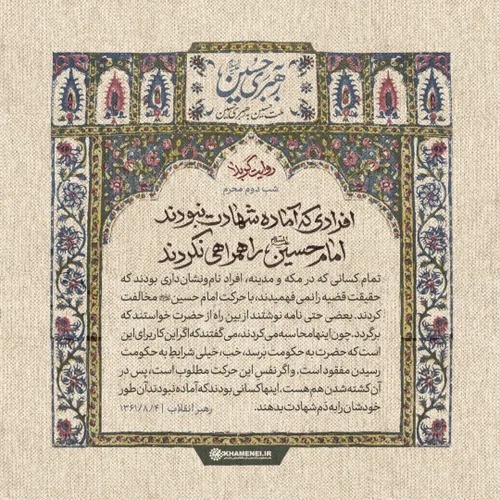 به رهبری حسین
ملت حسین به رهبری حسین
روایت کربلا
شب دوم محرم
افرادی که آماده شهادت نبودند
امام حسین علیه‌السلام را همراهی نکردند
تمام کسانی که در مکه و مدینه، افراد نام‌ونشان‌داری بودند که
حقیقت قضیه را نمی‌فهمیدند، با حرکت امام حسین علیه‌السلام مخالفت
کردند. بعضی حتی نامه نوشتند از بین راه از حضرت خواستند که
برگردد. چون اینها محاسبه می‌کردند، می‌گفتند که اگر این کار برای این
است که حضرت به حکومت برسد، خب، خیلی شرایط به حکومت
رسیدن مفقود است. و اگر نفس این حرکت مطلوب است، پس در
آن کشته شدن هم هست. اینها کسانی بودند که آماده نبودند آن طور
خودشان را به دم شهادت بدهند.
رهبر انقلاب | ۱۳۶۱/۸/۴
KHAMENEI.IR